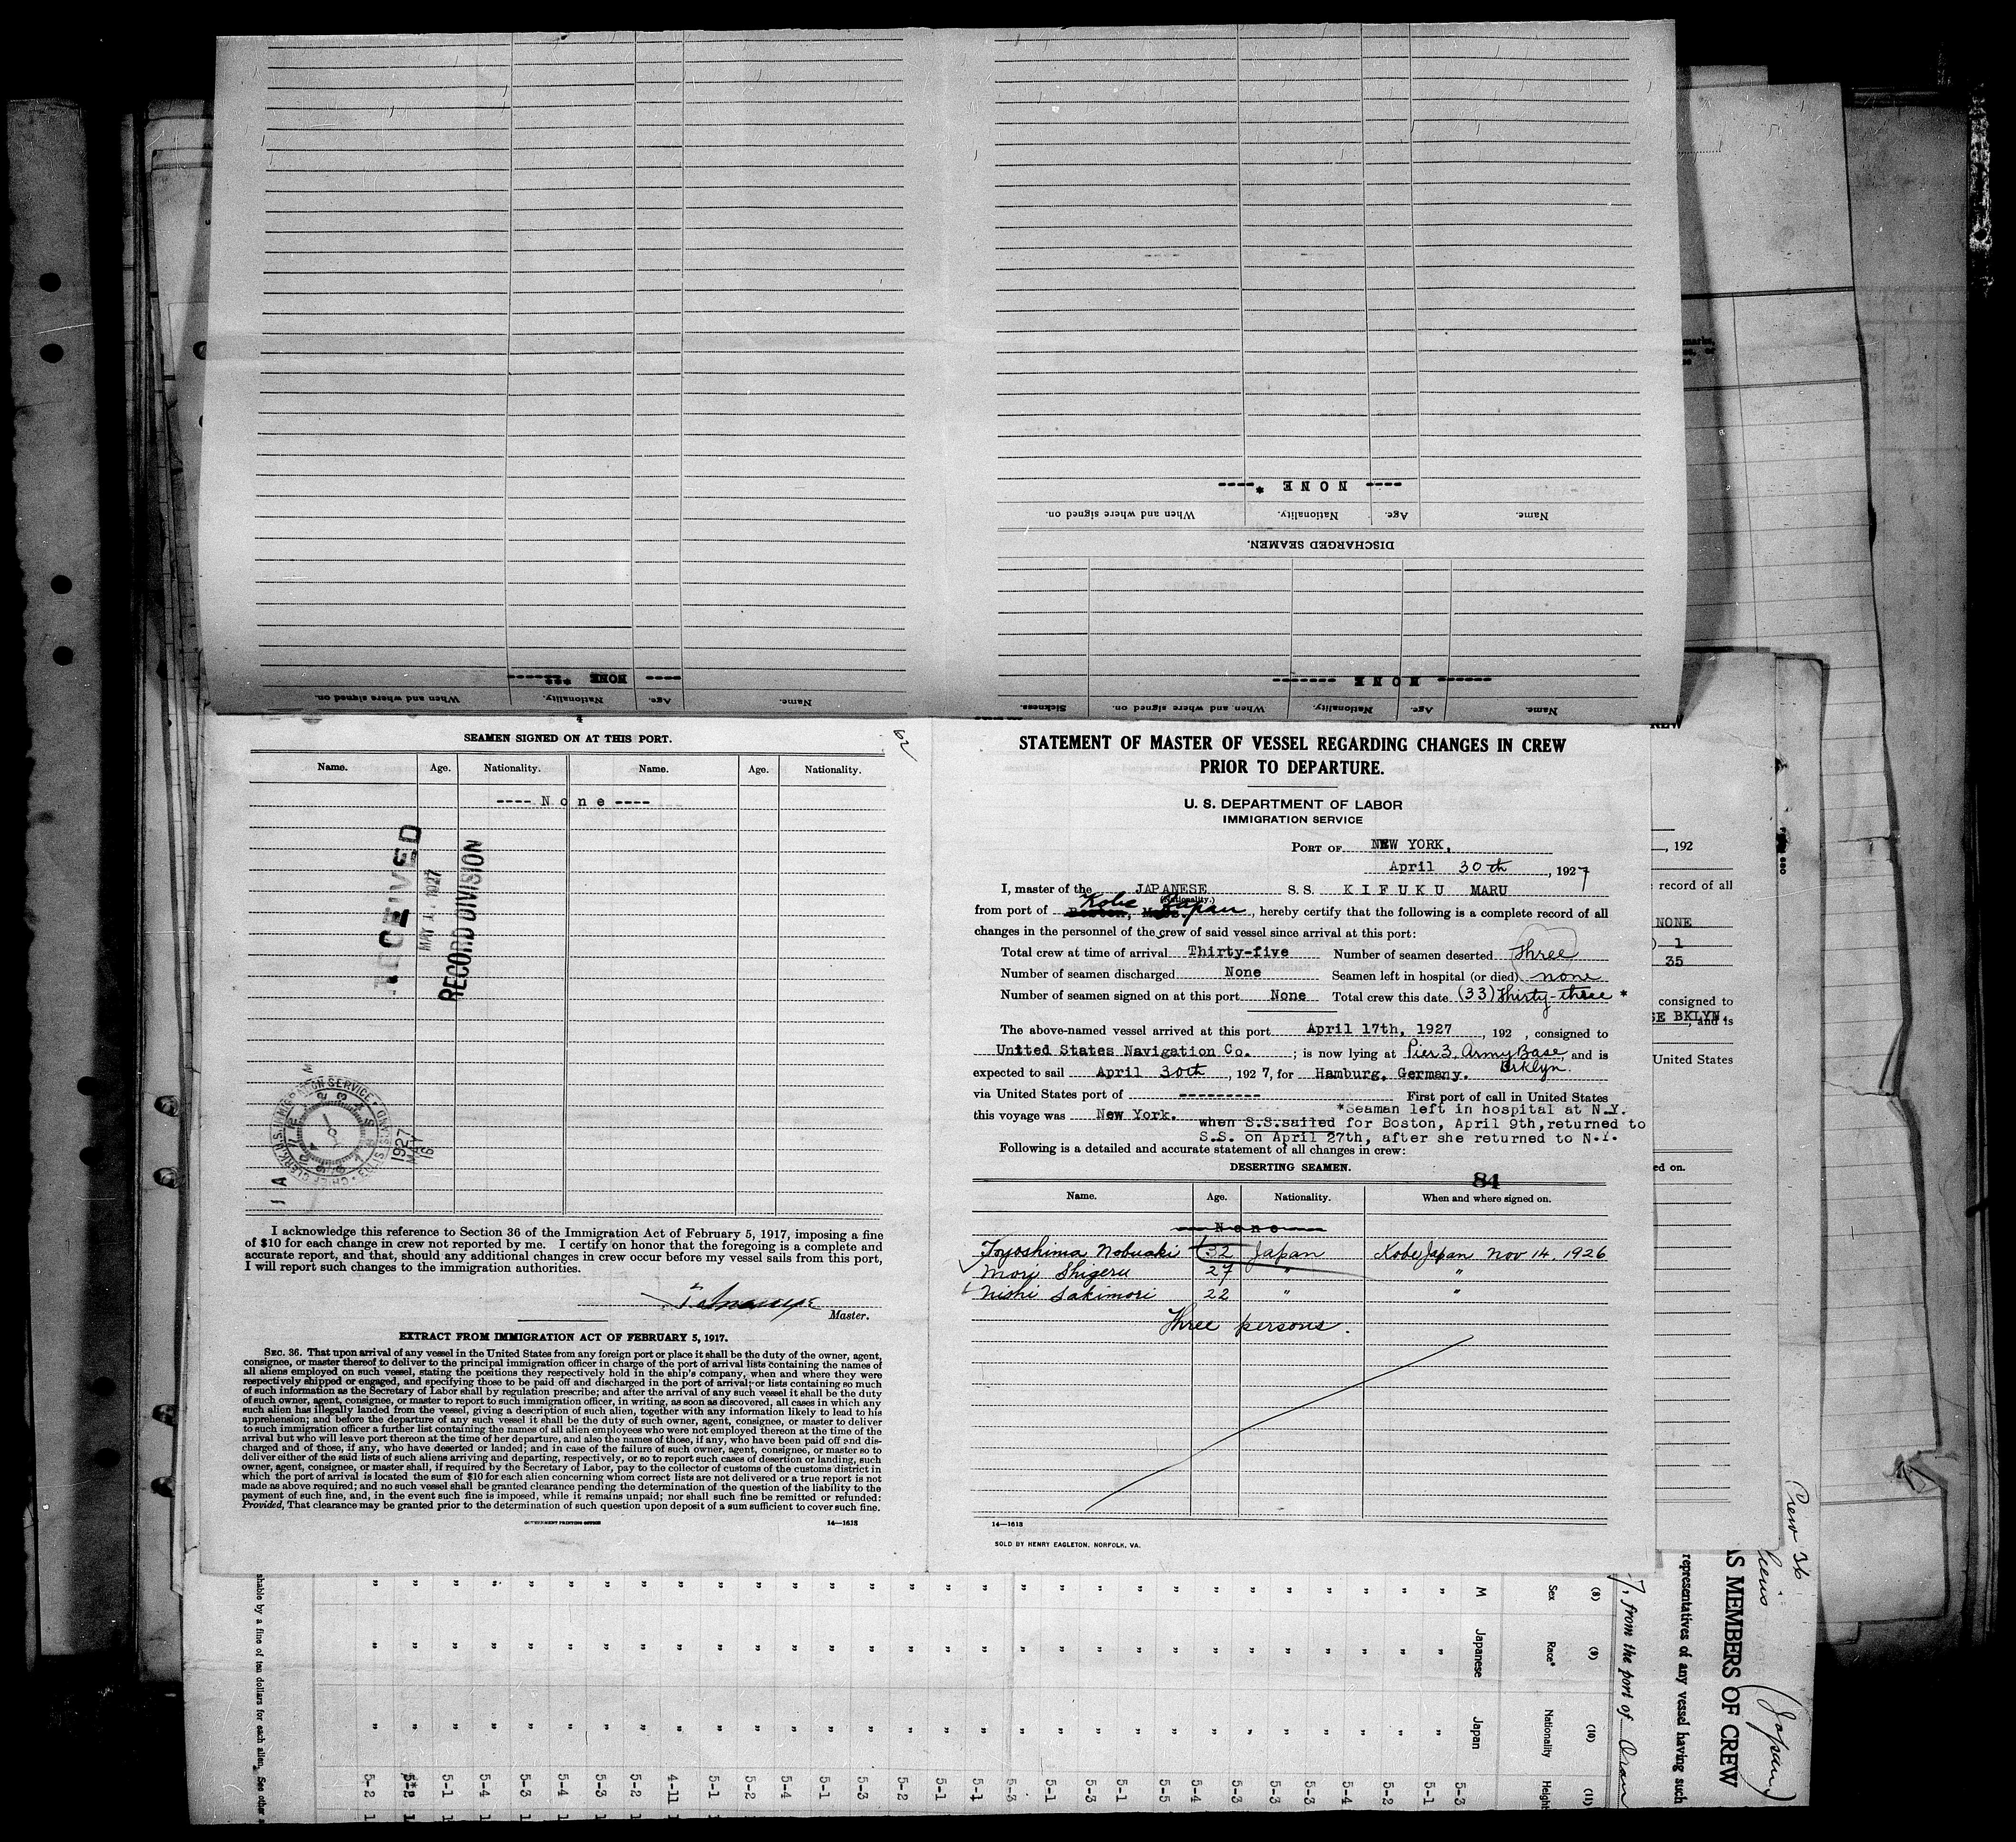 Name. Age. Nationality. When and where signed on.
---- NONE ----
Name. Age. Nationality. When and where signed on. Sickness.
------ NONE -------
DISCHARGED SEAMEN.
Name. Age. Nationality. When and where signed on.
---- NONE *----
4
62
SEAMEN SIGNED ON AT THIS PORT.
Name. Age. Nationality. Name. Age. Nationality.
---- None ----
RECEIVED
MAY 1927
RECORD DIVISION
1927
MAY
16
I acknowledge this reference to Section 36 of the Immigration Act of February 5, 1917, imposing a fine
of $10 for each change in crew not reported by me. I certify on honor that the foregoing is a complete and
accurate report, and that, should any additional changes in crew occur before my vessel sails from this port,
I will report such changes to the immigration authorities.
Master.
EXTRACT FROM IMMIGRATION ACT OF FEBRUARY 5, 1917.
SEC. 36. That upon arrival of any vessel in the United States from any foreign port or place it shall be the duty of the owner, agent,
consignee, or master thereof to deliver to the principal immigration officer in charge of the port of arrival lists containing the names of
all aliens employed on such vessel, stating the positions they respectively hold in the ship's company, when and where they were
respectively shipped or engaged, and specifying those to be paid off and discharged in the port of arrival; or lists containing so much
of such information as the Secretary of Labor shall by regulation prescribe; and after the arrival of any such vessel it shall be the duty
of such owner, agent, consignee, or master to report to such immigration officer, in writing, as soon as discovered, all cases in which any
such alien has illegally landed from the vessel, giving a description of such alien, together with any information likely to lead to his
apprehension; and before the departure of any such vessel it shall be the duty of such owner, agent, consignee, or master to deliver
to such immigration officer a further list containing the names of all alien employees who were not employed thereon at the time of the
arrival but who will leave port thereon at the time of her departure, and also the names of those, if any, who have been paid off and dis-
charged and of those, if any, who have deserted or landed; and in case of the failure of such owner, agent, consignee, or master so to
deliver either of the said lists of such aliens arriving and departing, respectively, or so to report such cases of desertion or landing, such
owner, agent, consignee, or master shall, if required by the Secretary of Labor, pay to the collector of customs of the customs district in
which the port of arrival is located the sum of $10 for each alien concerning whom correct lists are not delivered or a true report is not
made as above required; and no such vessel shall be granted clearance pending the determination of the question of the liability to the
payment of such fine, and, in the event such fine is imposed, while it remains unpaid; nor shall such fine be remitted or refunded:
Provided, That clearance may be granted prior to the determination of such question upon deposit of a sum sufficient to cover such fine.
GOVERNMENT PRINTING OFFICE 14—1613
STATEMENT OF MASTER OF VESSEL REGARDING CHANGES IN CREW
PRIOR TO DEPARTURE.
U. S. DEPARTMENT OF LABOR
IMMIGRATION SERVICE
PORT OF NEW YORK,
April 30th, 1927
I, master of the JAPANESE S.S. KIFUKU MARU
(Nationality.)
from port of Kobe Japan, hereby certify that the following is a complete record of all
changes in the personnel of the crew of said vessel since arrival at this port:
Total crew at time of arrival Thirty-five Number of seamen deserted Three
Number of seamen discharged None Seamen left in hospital (or died) none
Number of seamen signed on at this port None Total crew this date (33) Thirty-three *
The above-named vessel arrived at this port April 17th, 1927, 192 , consigned to
United States Navigation Co. ; is now lying at Pier 3, Army Base, and is
Brklyn.
expected to sail April 30th, 1927, for Hamburg, Germany.
via United States port of --------- First port of call in United States
this voyage was New York. *Seaman left in hospital at N.Y.
when S.S. sailed for Boston, April 9th, returned to
S.S. on April 27th, after she returned to N.Y.
Following is a detailed and accurate statement of all changes in crew:
DESERTING SEAMEN.
84
Name. Age. Nationality. When and where signed on.
---None---
Toyoshima Nobuaki 32 Japan Kobe Japan Nov 14, 1926
Mori Shigeru 27 " "
Nishi Sakimori 22 " "
Three persons.
14—1613
SOLD BY HENRY EAGLETON, NORFOLK, VA.
, 192
record of all
NONE
1
35
consigned to
SE BKLYN, and is
United States
ed on.
Crew 36
(Japan)
AS MEMBERS OF CREW
representatives of any vessel having such
7, from the port of Oran
(8) (9) (10) (11)
Sex Race* Nationality Height
M Japanese Japan 5-3
5-1
5-2
5-4
5-3
5-3
5-4
5-3
5-5
5-1
5-3
5-1
5-3
5-1
5-1
5-2
5-3
5-2
5-4
5-1
4-11
5-1
5-3
5-4
5-3
5-4
5-1
5-2
shable by a fine of ten dollars for each alien. See other